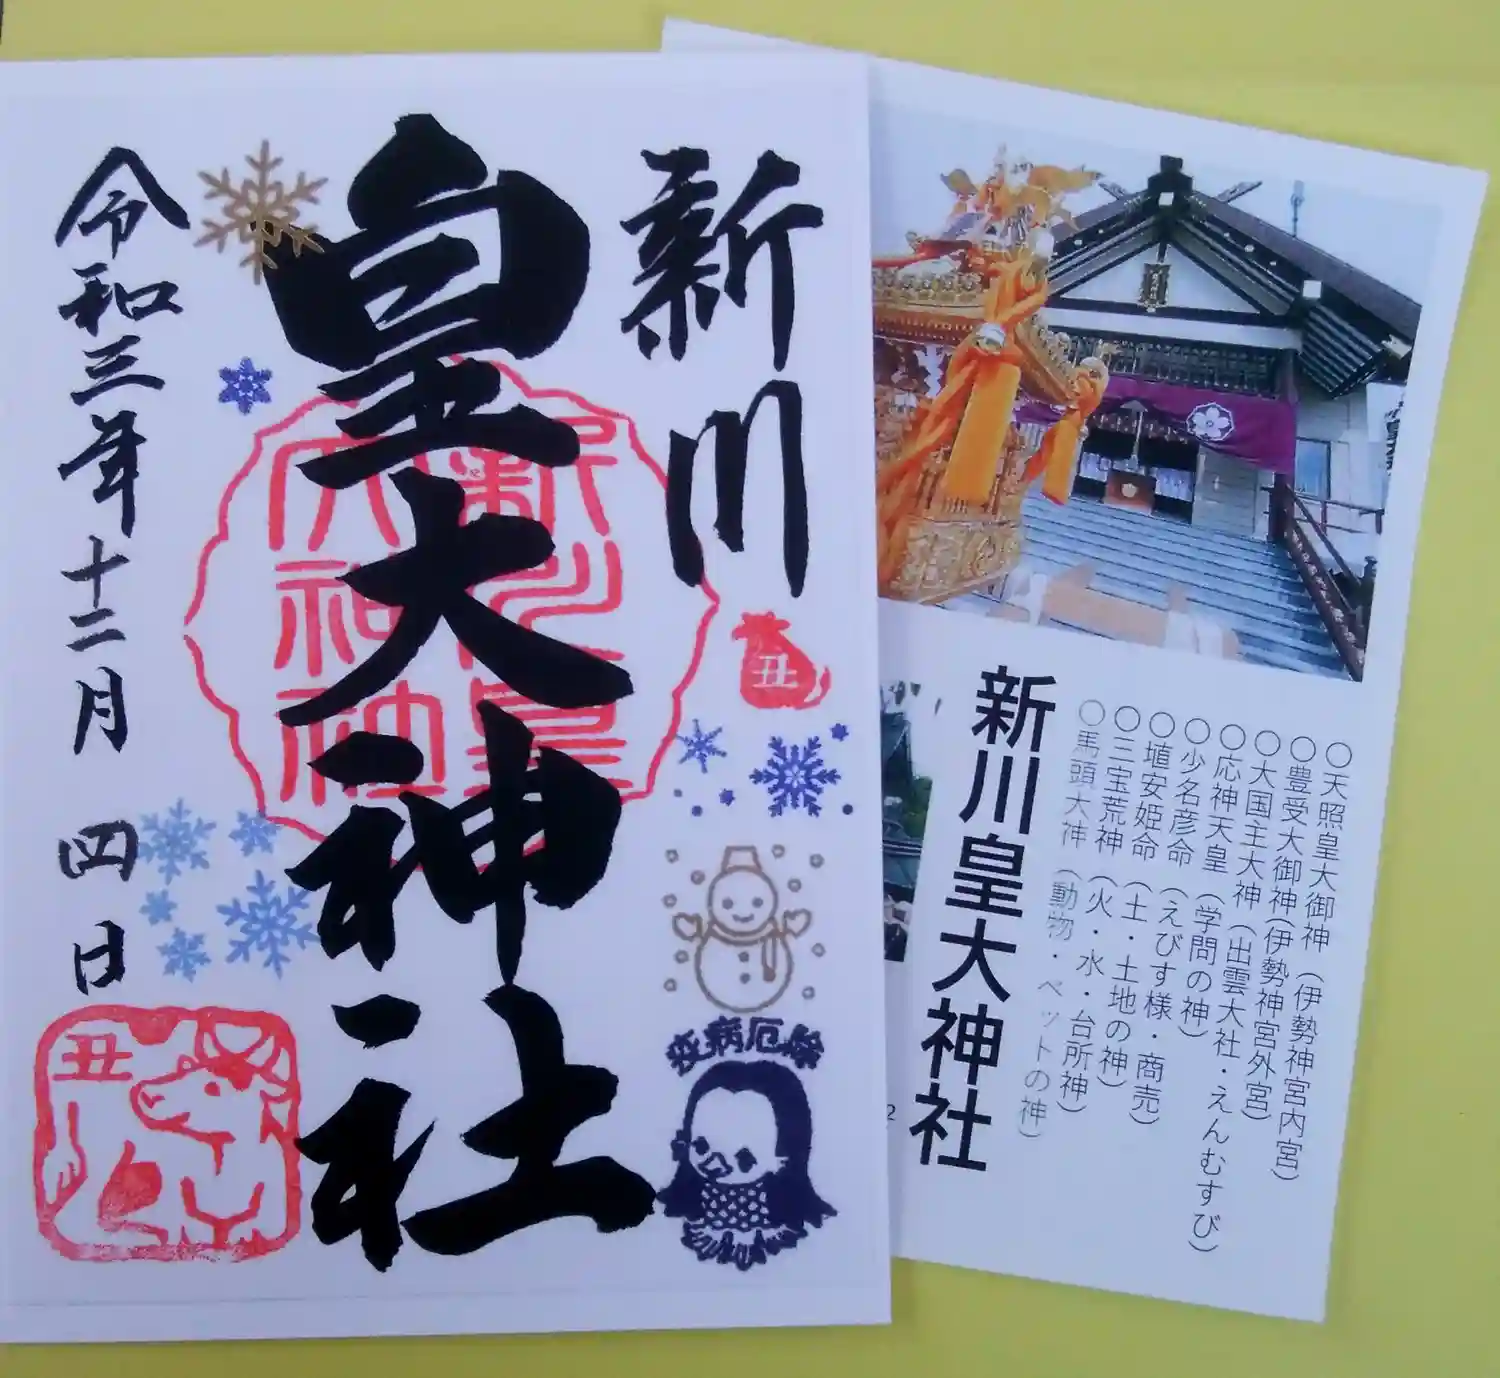 新川
皇大神社
令和三年十二月 四日
新川皇大神社
丑
疫病厄除
丑
新川皇大神社
○天照皇大御神（伊勢神宮内宮）
○豊受大御神(伊勢神宮外宮）
○大国主大神（出雲大社・えんむすび）
○応神天皇（学問の神）
○少名彦命（えびす様・商売）
○埴安姫命（土・土地の神）
○三宝荒神（火・水・台所神）
○馬頭大神（動物・ペットの神）
2